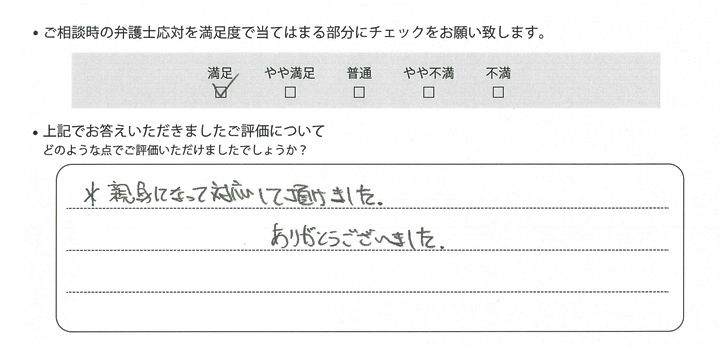 • ご相談時の弁護士応対を満足度で当てはまる部分にチェックをお願い致します。
満足 やや満足 普通 やや不満 不満
☑ □ □ □ □
• 上記でお答えいただきましたご評価について
どのような点でご評価いただけましたでしょうか？
* 親身になって対応して頂けました。
ありがとうございました。